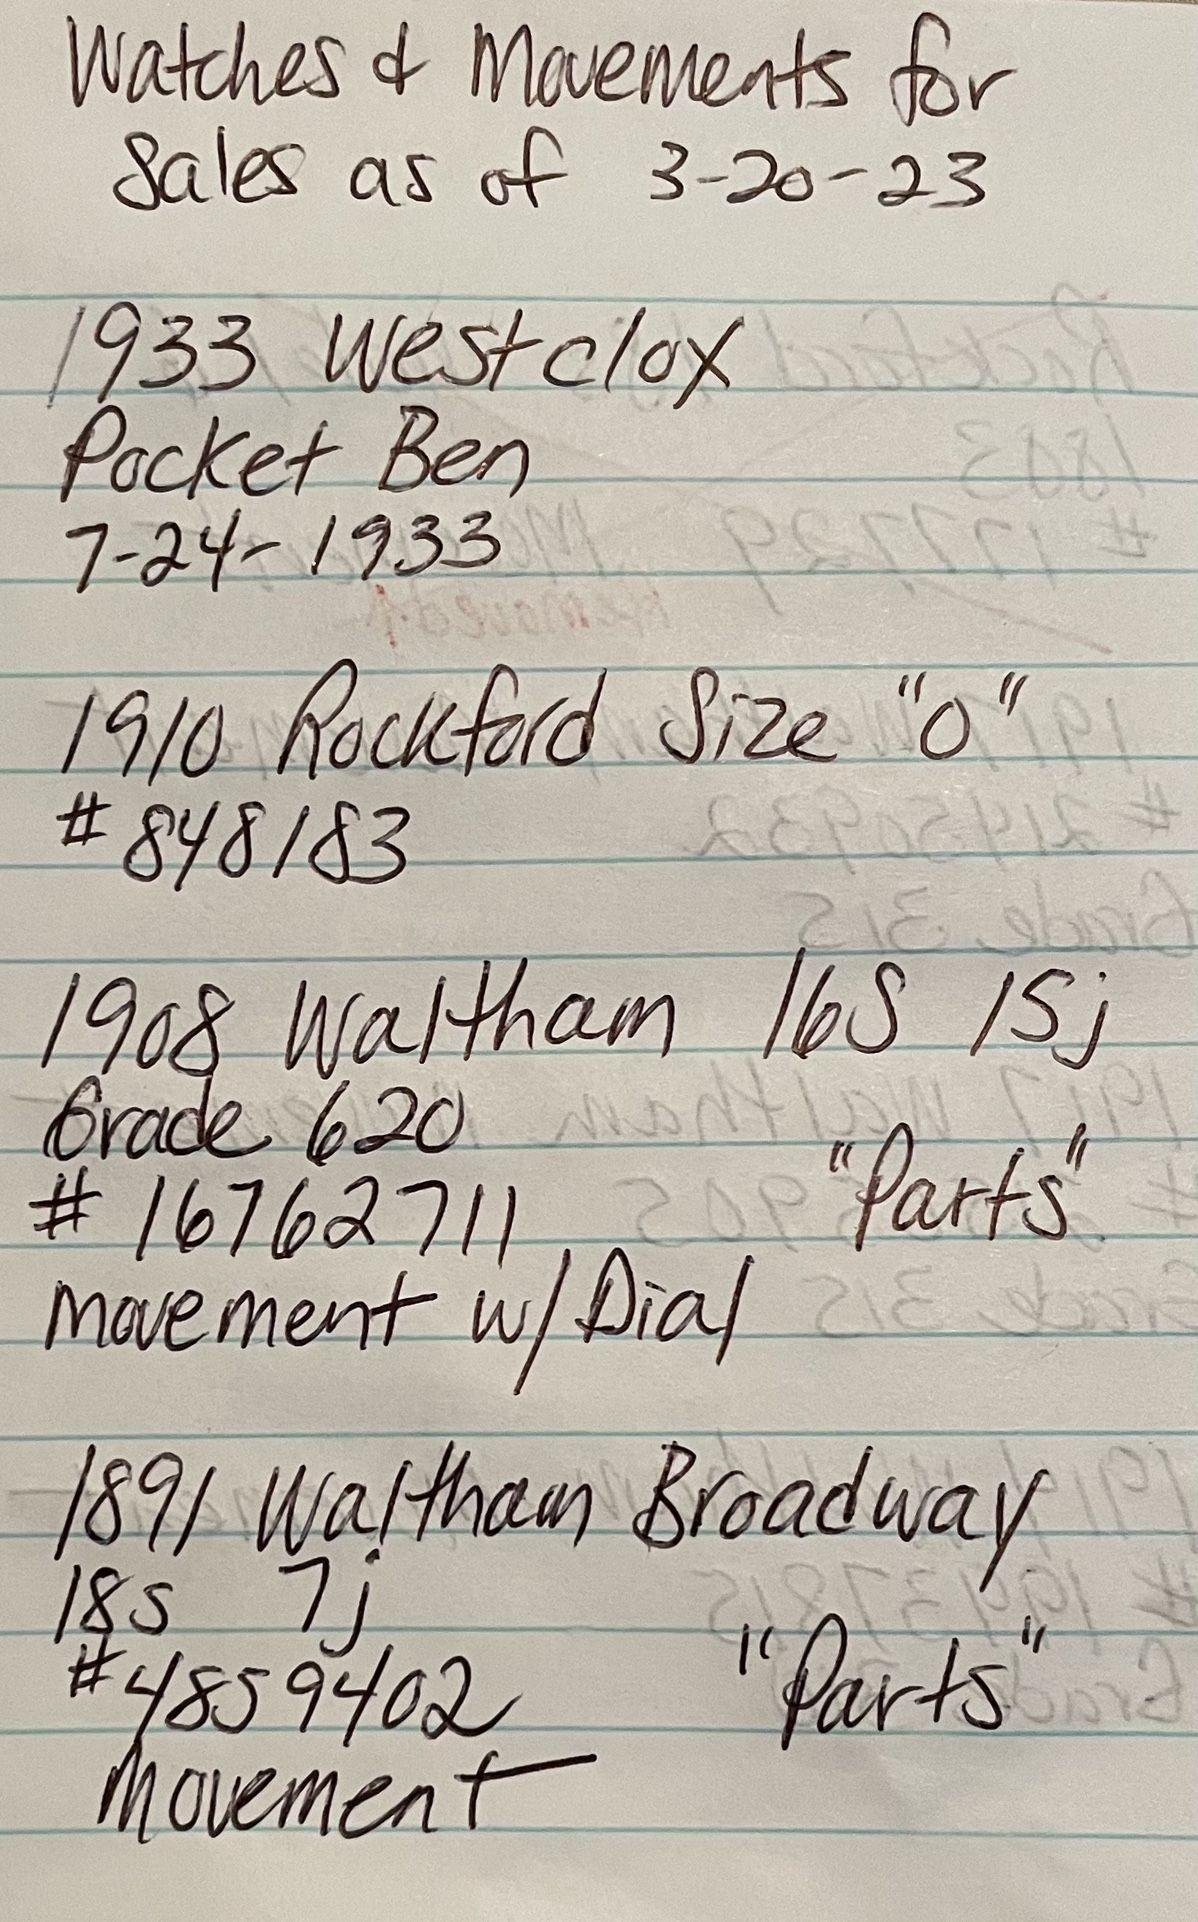 Watches & Movements for
Sales as of 3-20-23
1933 Westclox
Pocket Ben
7-24-1933
1910 Rockford Size "0"
#848183
1908 Waltham 16S 15j
Grade 620
#16762711 "Parts"
Movement w/Dial
1891 Waltham Broadway
18s 7j
#4859402 "Parts"
Movement